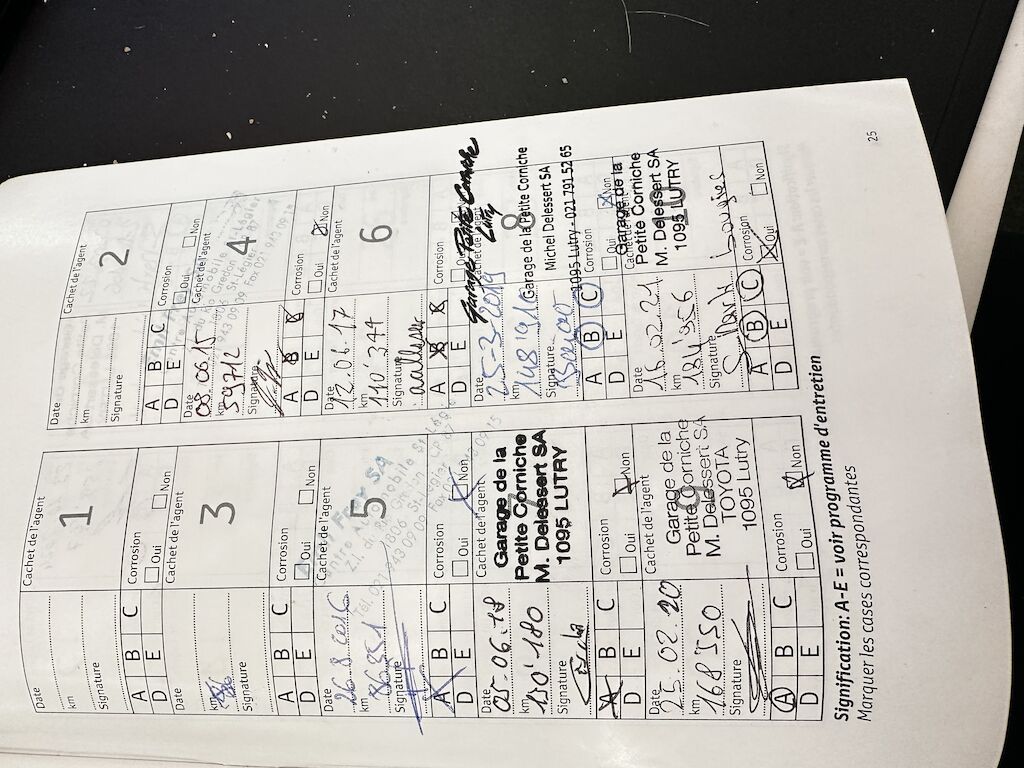 1
Cachet de l'agent
Date
km
Signature
A B C
D E
Corrosion
Oui Non
2
Cachet de l'agent
Date
km
Signature
A B C
D E
Corrosion
Oui Non
3
Cachet de l'agent
Date
km
Signature
A B C
D E
Corrosion
Oui Non
4
Cachet de l'agent
Date
08.06.15
km
59712
Signature
A B C
D E
Corrosion
Oui Non
5
Cachet de l'agent
Date
26.8.2016
km
86351
Signature
A B C
D E
Corrosion
Oui Non
6
Cachet de l'agent
Date
12.06.17
km
110'244
Signature
A B C
D E
Corrosion
Oui Non
7
Cachet de l'agent
Garage de la
Petite Corniche
M. Delessert SA
1095 LUTRY
Date
05.06.18
km
130'180
Signature
A B C
D E
Corrosion
Oui Non
8
Cachet de l'agent
Garage Petite Corniche
Lutry
Garage de la Petite Corniche
Michel Delessert SA
1095 Lutry - 021 791 52 65
Date
25-3-2019
km
148'910
Signature
A B C
D E
Corrosion
Oui Non
9
Cachet de l'agent
Garage de la
Petite Corniche
M. Delessert SA
TOYOTA
1095 Lutry
Date
25.02.20
km
168 550
Signature
A B C
D E
Corrosion
Oui Non
Cachet de l'agent
Garage de la
Petite Corniche
M. Delessert SA
1095 LUTRY
Date
16.02.21
km
184'956
Signature
A B C
D E
Corrosion
Oui Non
Signification: A-E = voir programme d'entretien
Marquer les cases correspondantes
25